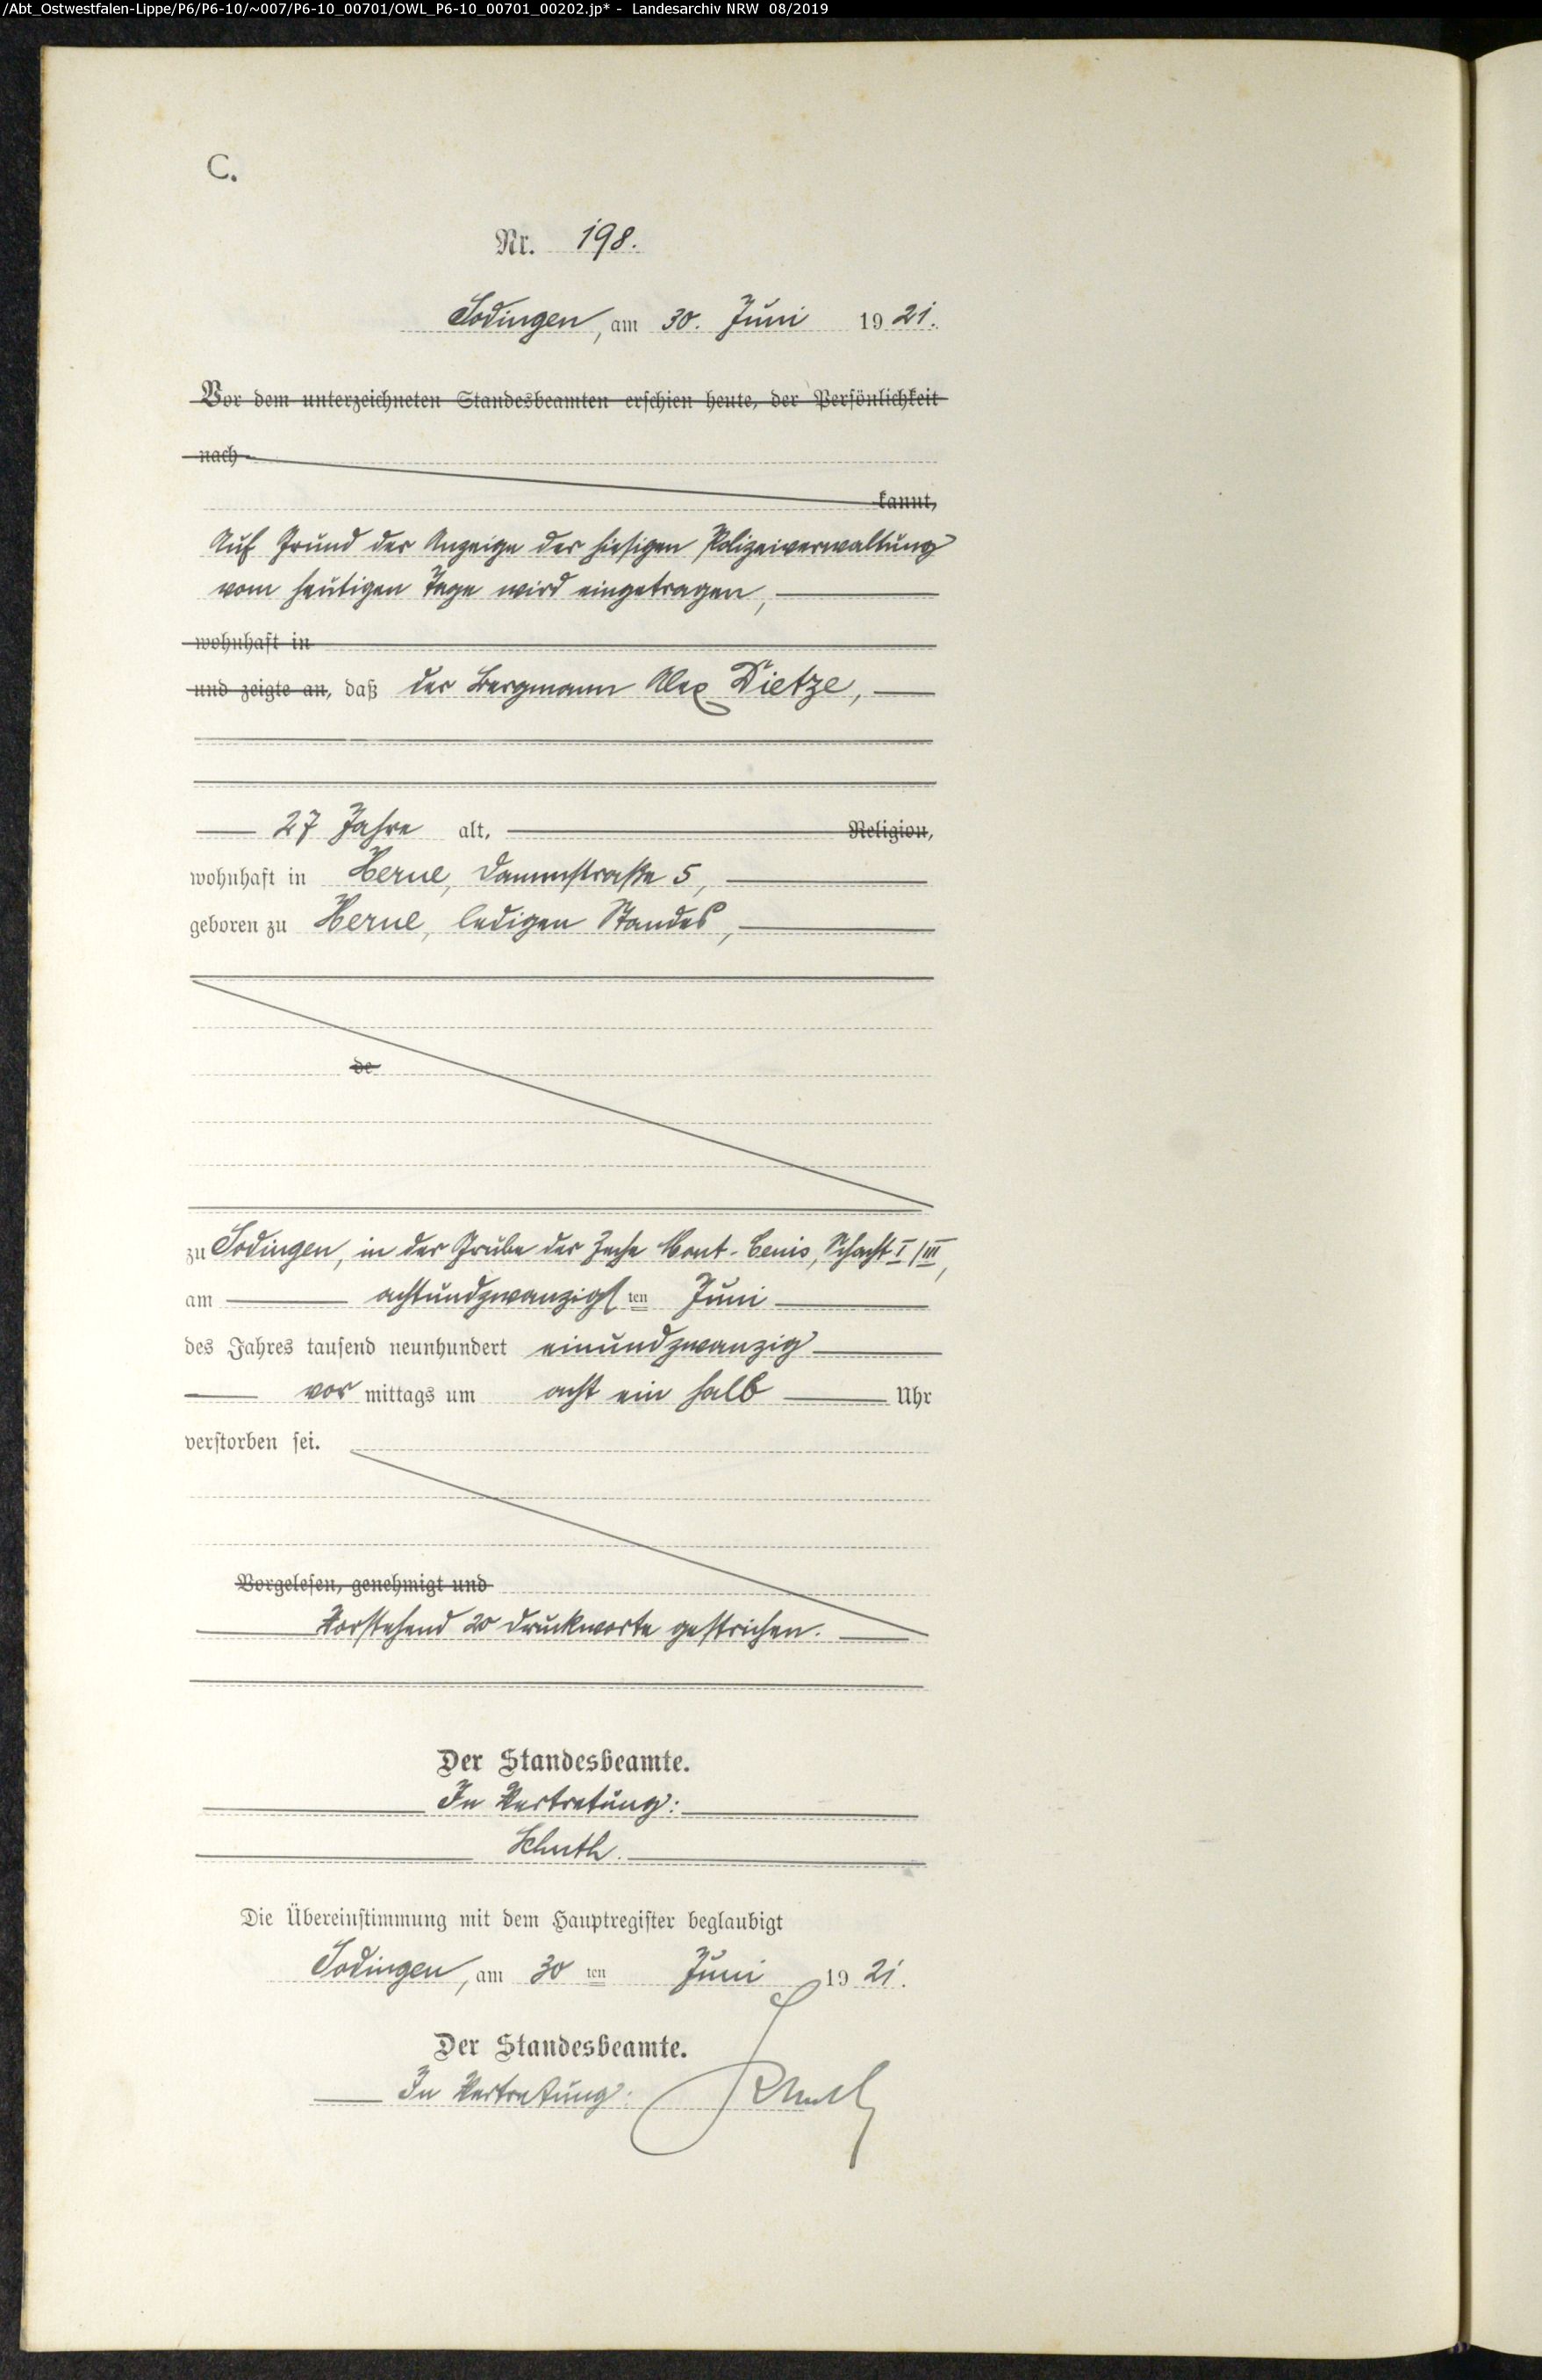 /Abt_Ostwestfalen-Lippe/P6/P6-10/~007/P6-10_00701/OWL_P6-10_00701_00202.jp* - Landesarchiv NRW 08/2019
C.
Nr. 198.
Sodingen, am 30. Juni 1921.
Vor dem unterzeichneten Standesbeamten erschien heute, der Persönlichkeit
nach
kannt,
Auf Grund der Anzeige der hiesigen Polizeiverwaltung
vom heutigen Tage wird eingetragen,
wohnhaft in
und zeigte an, daß der Bergmann Alex Dietze,
27 Jahre alt, Religion,
wohnhaft in Herne, Dammstraße 5,
geboren zu Herne, ledigen Standes,
de
zu Sodingen, in der Grube der Zeche Mont-Cenis, Schacht I/III,
am achtundzwanzigsten Juni
des Jahres tausend neunhundert einundzwanzig
vor mittags um acht ein halb Uhr
verstorben sei.
Vorgelesen, genehmigt und
Vorstehend 20 Druckworte gestrichen.
Der Standesbeamte.
In Vertretung:
Schuth.
Die Übereinstimmung mit dem Hauptregister beglaubigt
Sodingen, am 30 ten Juni 1921.
Der Standesbeamte.
In Vertretung: Schuth